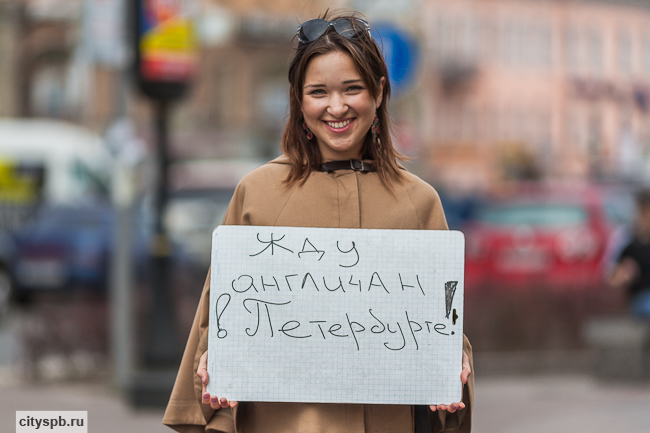 Жду
англичан
в Петербурге!
cityspb.ru